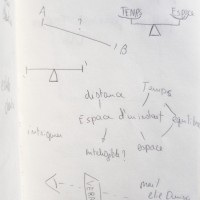 A
?
B
TEMPS
Espace
distance
Temps
Espace d'un instant
équilibre
intriguer
intelligible ?
espace
VERRE